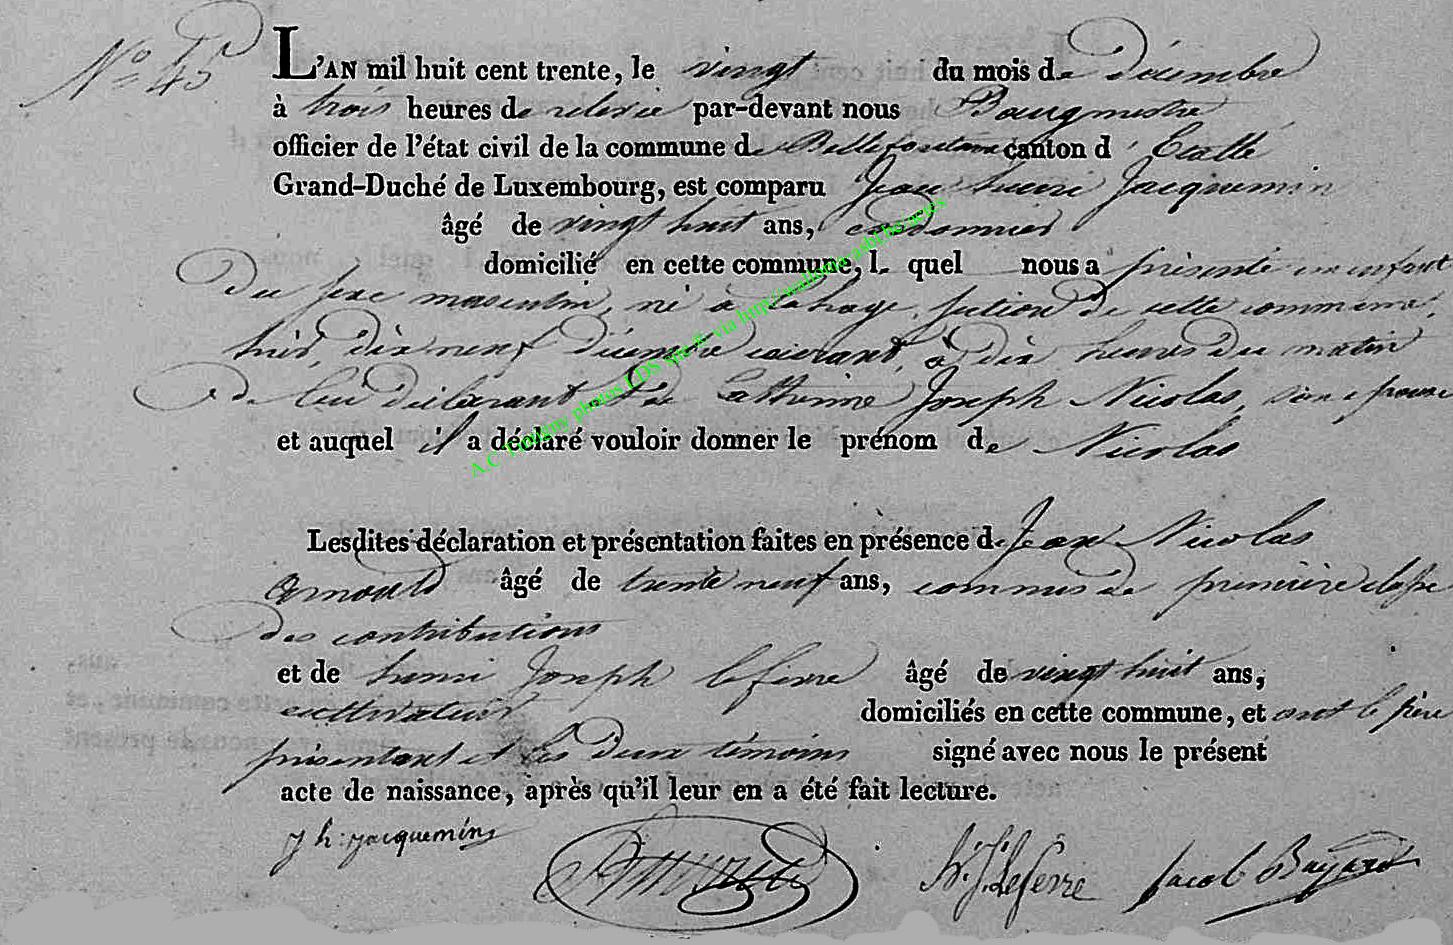 N° 45
L'AN mil huit cent trente, le vingt du mois de décembre
à trois heures de relevée par-devant nous Bourgmestre
officier de l'état civil de la commune de Bellefontaine canton d'Etalle
Grand-Duché de Luxembourg, est comparu Jean henri Jacquemin
âgé de vingt huit ans, cordonnier
domicilié en cette commune, lequel nous a présenté un enfant
du sexe masculin, né à Lahage, section de cette commune,
hier, dix neuf décembre courant, à dix heures du matin
de lui déclarant et de Catherine Joseph Nicolas, son epouse
et auquel il a déclaré vouloir donner le prénom de Nicolas
Lesdites déclaration et présentation faites en présence de Jean Nicolas
Arnould âgé de trente neuf ans, commis de première classe
des contributions
et de henri Joseph lefevre âgé de vingt huit ans,
cultivateur domiciliés en cette commune, et ont le père
présentant et les deux témoins signé avec nous le présent
acte de naissance, après qu'il leur en a été fait lecture.
J h: jacquemin H. J. Lefevre Jacob
A.C Tintigny photos LDS via http://